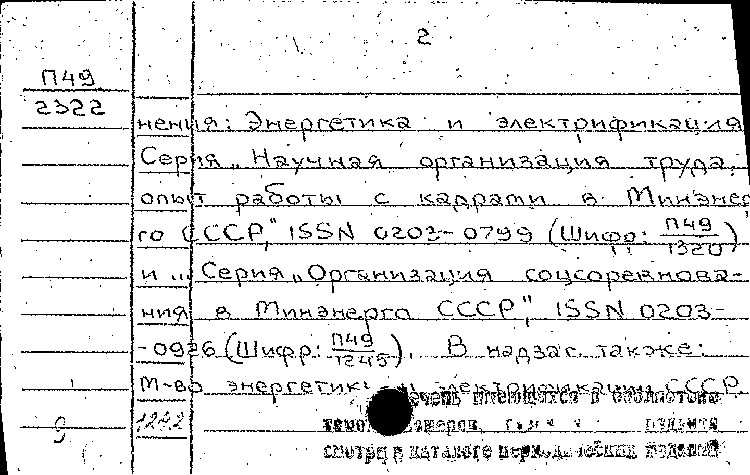 2
П49
2322
нения: Энергетика и электрификация
Серия „Научная организация труда,
опыт работы с кадрами в Минэнер
го СССР", ISSN 0203-0799 (Шифр: П49/1320)
и „Серия „Организация соцсоревнова-
ния в Минэнерго СССР", ISSN 0203-
-0926 (Шифр: П49/1245). В надзаг. также:
М-во энергетики и электрификации СССР.
имеющихся в библиотеке
номеров, издания
смотри в каталоге периодических изданий